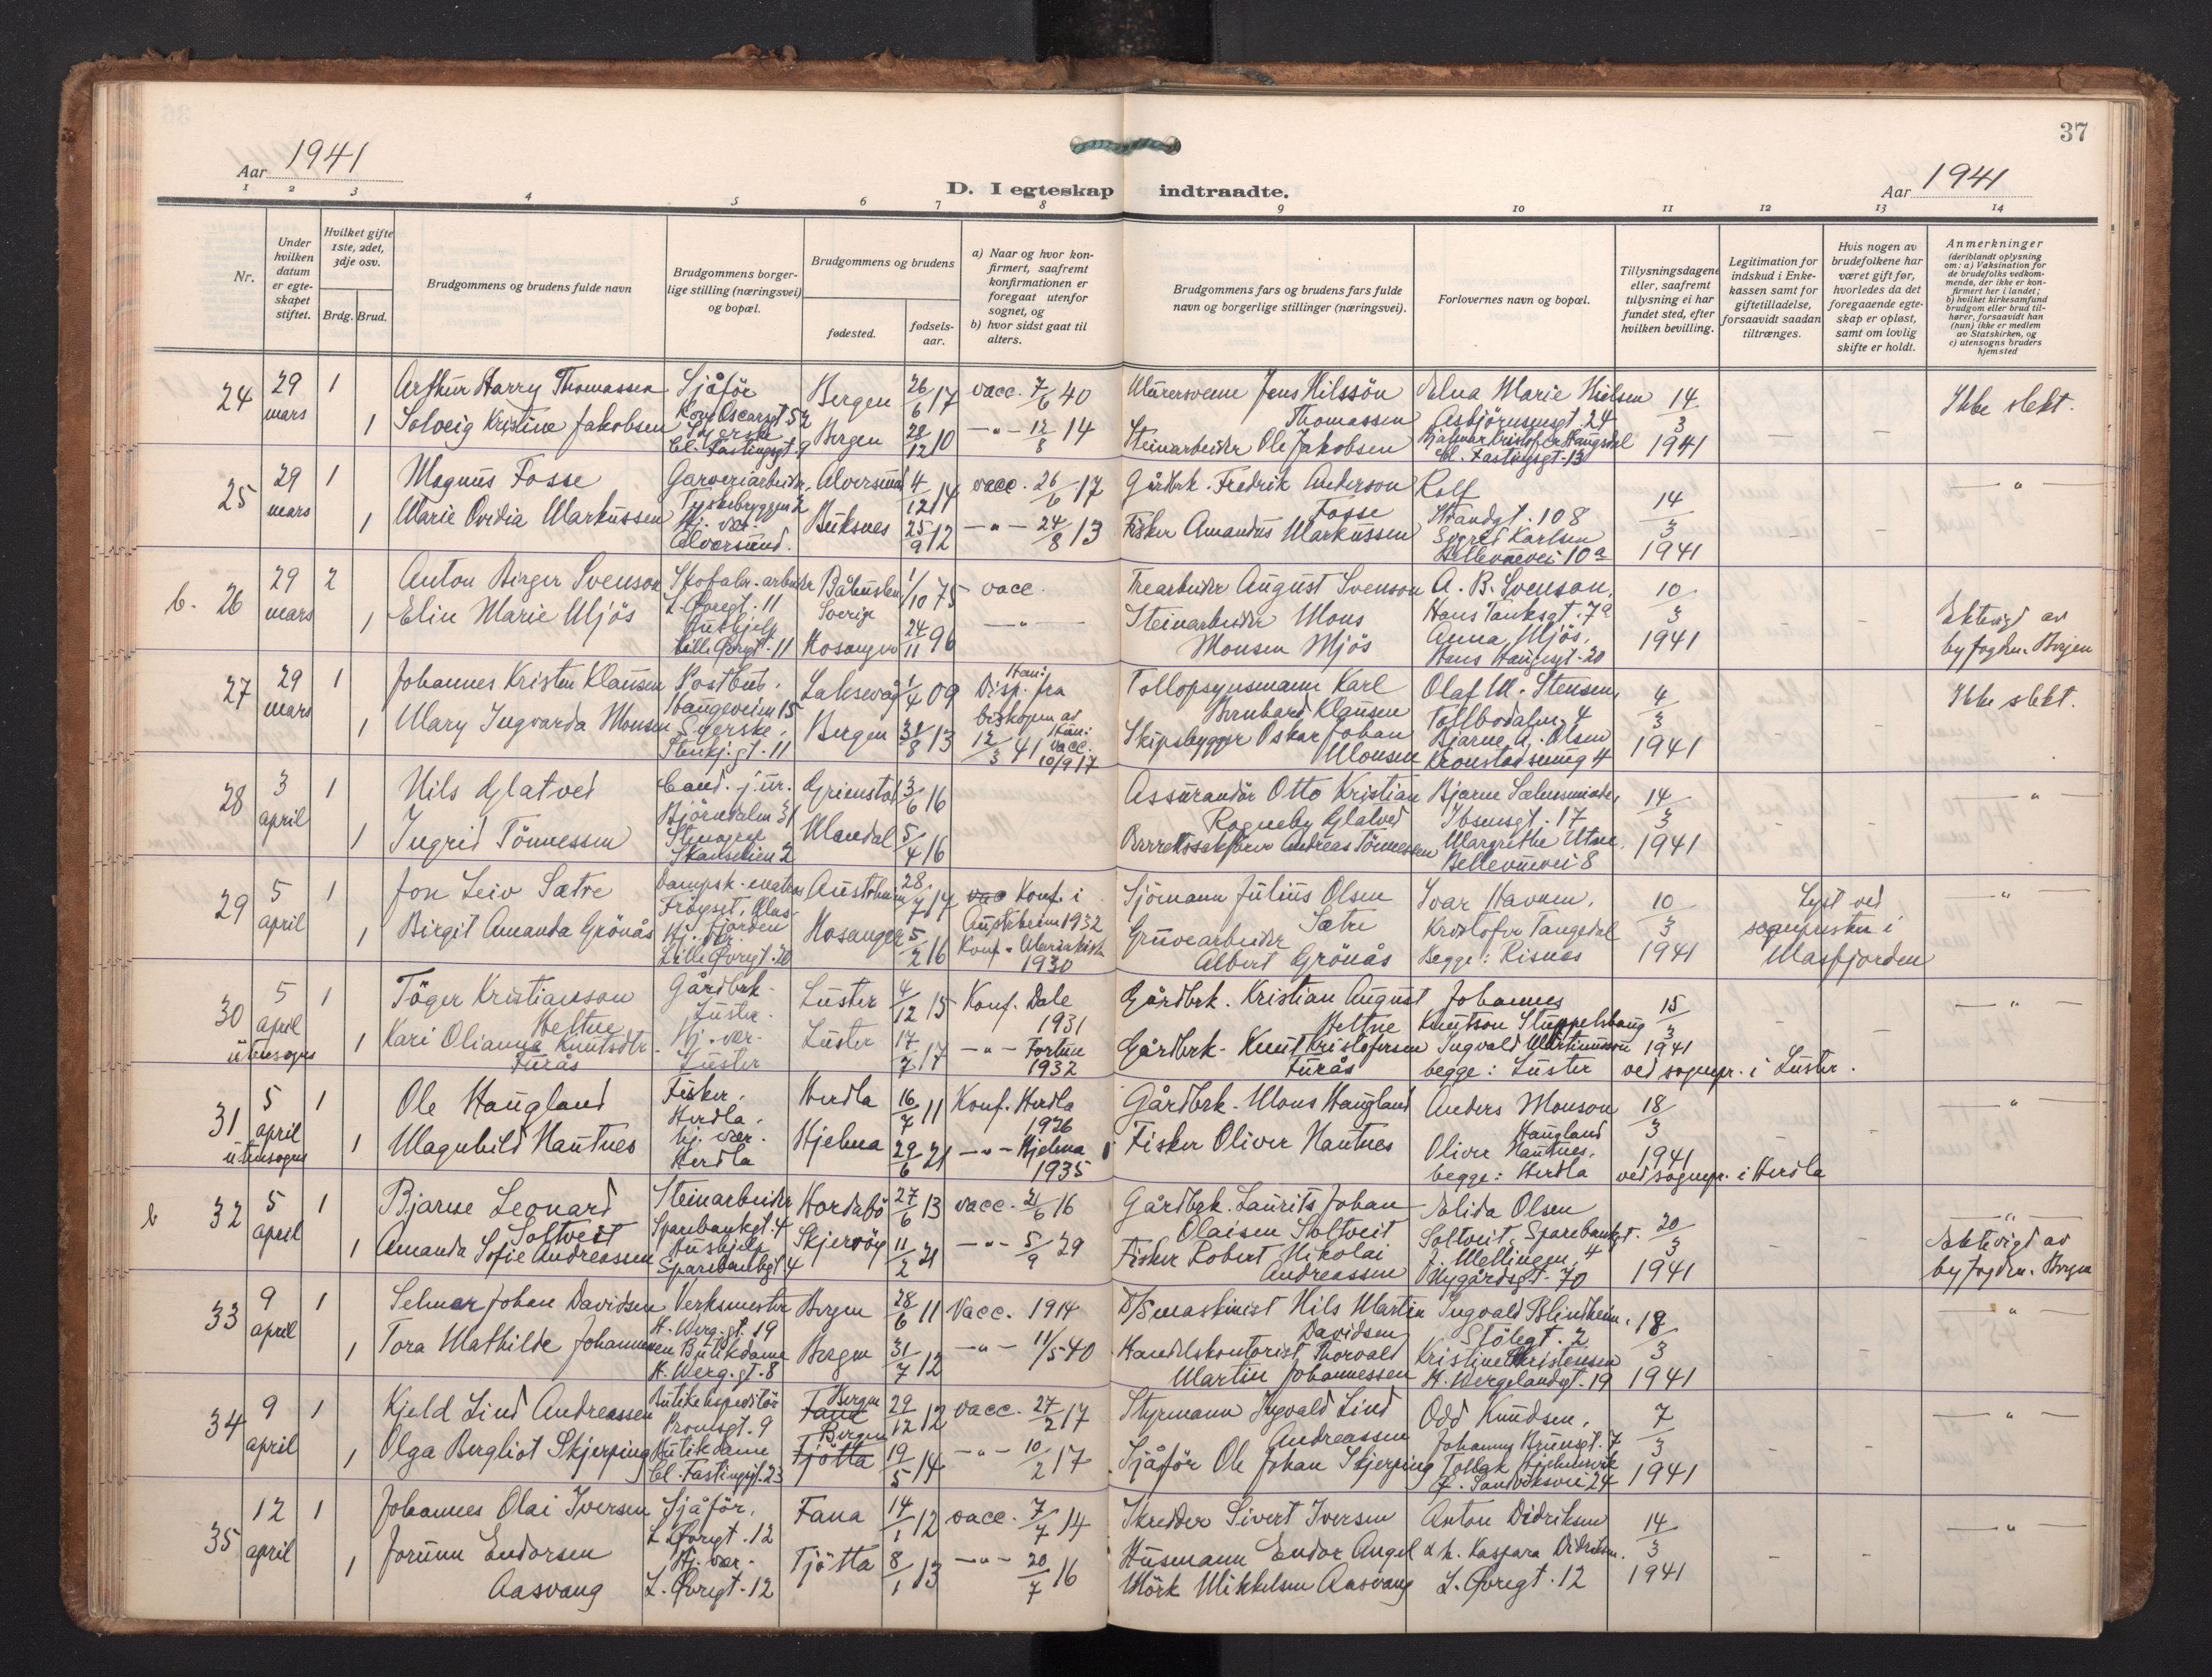 37
Aar 1941
D. I egteskap indtraadte.
Aar 1941
1 2 3 4 5 6 7 8 9 10 11 12 13 14
Nr.
Under hvilken datum er egteskapet stiftet.
Hvilket gifte 1ste, 2det, 3dje osv.
Brdg. Brud.
Brudgommens og brudens fulde navn
Brudgommens borgerlige stilling (næringsvei) og bopæl.
Brudgommens og brudens
fødested.
fødselsaar.
a) Naar og hvor konfirmert, saafremt konfirmationen er foregaat utenfor sognet, og
b) hvor sidst gaat til alters.
Brudgommens fars og brudens fars fulde navn og borgerlige stillinger (næringsvei).
Forlovernes navn og bopæl.
Tillysningsdagene eller, saafremt tillysning ei har fundet sted, efter hvilken bevilling.
Legitimation for indskud i Enkekassen samt for giftetilladelse, forsaavidt saadan tiltrænges.
Hvis nogen av brudefolkene har været gift før, hvorledes da det foregaaende egteskap er opløst, samt om lovlig skifte er holdt.
Anmerkninger (deriblandt oplysning om: a) Vaksination for de brudefolks vedkommende, der ikke er konfirmert her i landet; b) hvilket kirkesamfund brudgom eller brud tilhører, forsaavidt han (hun) ikke er medlem av Statskirken, og c) utensogns bruders hjemsted
24 29 mars 1 Arthur Harry Thomassen Sjåfør Kong Oscarsgt 52 Bergen 26/6 17 vacc. 7/6 40 Murersvenn Jens Nilssön Thomassen Elna Marie Nielsen Asbjörnsensgt. 24 14/3 1941 Ikke slekt.
1 Solveig Kristine Jakobsen Syerske Cl. Fastingsgt 9 Bergen 28/12 10 -"- 12/8 14 Steinarbeider Ole Jakobsen Hjalmar Kristofer Haugsdal Cl. Fastingsgt. 13 - -
25 29 mars 1 Magnus Fosse Garveriarbeider, Tyskebryggen 2 Alversund 4/12 14 vacc. 26/6 17 Gårdbrk. Fredrik Anderson Fosse Rolf Strandgt. 108 14/3 1941 - " -
1 Marie Ovidia Markussen Hj. vær. Alversund. Buksnes 25/9 12 -"- 24/8 13 Fisker Amandus Markussen Sverre Karlsen Bellevuevei 10a
b. 26 29 mars 2 Anton Birger Svenson Skofabr. arbeider L. Øvregt. 11 Båhuslen Sverige 1/10 75 vacc. Trearbeider August Svenson A. B. Svenson, Hans Tanksgt. 7a 10/3 1941
1 Elin Marie Mjös Hushjelp Lille Øvregt. 11 Hosanger 24/11 96 -"- Steinarbeider Mons Monsen Mjös Anna Mjös, Hans Haugesgt. 20 Ektevigd av byfogden. Bergen
27 29 mars 1 Johannes Kristen Klausen Postbud. Haugeveien 15 Laksevåg 1/4 09 Han: Disp. fra biskopen av 12/3 41 Tollopsynsmann Karl Bernhard Klausen Olaf M. Stensen, Tollbodalm. 4 4/3 1941 Ikke slekt.
1 Mary Ingvarda Monsen Syerske. Stenkj.gt. 11 Bergen 31/8 13 Hun: vacc. 10/9 17 Skipsbygger Oskar Johan Monsen Bjarne A. Olsen Kronstadsmug 4
28 3 april 1 Nils Glatved Cand. jur. Björndalen 31 Grimstad 3/6 16 Assurandör Otto Kristian Rogneby Glatved Bjarne Ibsensgt. 17 14/3 1941 - " -
1 Ingrid Tönnessen Skanselien 2 Mandal 5/4 16 Overrettssakförer Andreas Tönnessen Margrethe Utne, Bellevuevei 8
29 5 april 1 Jon Leiv Sætre Dampsk. matros Fröyset, Masfjorden Austrheim 28/7 14 Konf. i Austrheim 1932 Sjömann Julius Olsen Sætre Ivar Havnen, 10/3 1941 Lyst ved sogneprester i Masfjorden - " -
1 Birgit Amanda Grönås Hj. vær. Lille Øvregt. 20 Hosanger 5/2 16 Konf. Mariakirken 1930 Gruvearbeider Albert Grönås Kristofer Tangedal Begge: Risnes
30 5 april utensogns 1 Töger Kristianson Heltne Gårdbrk. Luster. Luster 4/12 15 Konf. Dale 1931 Gårdbrk. Kristian August Heltne Johannes Knutson 15/3 1941 - " -
1 Kari Olianna Knutsdtr. Furås Hj. vær. Luster Luster 17/7 17 -"- Fortun 1932 Gårdbrk. Knut Kristofersen Furås Ingvald Martinusson begge: Luster ved sognepr. i Luster.
31 5 april utensogns 1 Ole Haugland Fisker, Herdla. Herdla 16/7 11 Konf. Herdla 1926 Gårdbrk. Mons Haugland Anders Monson Haugland 18/3 1941 - " -
1 Magnhild Nautnes hj. vær. Herdla Hjelma 29/6 21 -"- Hjelma 1935 Fisker Oliver Nautnes Oliver Nautnes, begge: Herdla ved sognepr. i Herdla
b 32 5 april 1 Bjarne Leonard Soltveit Steinarbeider Sparebankgt. 4 Hordabö 27/6 13 vacc. 21/6 16 Gårdbrk. Laurits Johan Olaisen Soltveit Elida Olsen Soltveit, Sparebankgt. 4 20/3 1941 - " -
1 Amanda Sofie Andreassen Hushjelp Sparebankgt 4 Skjervöy 11/2 21 -"- 5/9 29 Fisker Robert Nikolai Andreassen Mellingen, Nygårdsgt. 70 Ektevigd av byfogden. Bergen
33 9 april 1 Selmar Johan Davidsen Verksmester H. Werg.gt. 19 Bergen 28/6 11 Vacc. 1914 D/S maskinist Nils Martin Davidsen Ingvald Blindheim, Stölegt. 2 18/3 1941 - " -
1 Tora Mathilde Johannessen Butikdame H. Werg.gt. 8 Bergen 31/7 12 -"- 11/5 40 Handelskontorist Thorvald Martin Johannessen Kristine Kristensen H. Wergelandsgt. 19
34 9 april 1 Kjeld Lind Andreassen Butikekspeditör Promsgt. 9 Fana Bergen 29/12 12 vacc. 27/2 17 Styrmann Ingvald Lind Andreassen Odd Knudsen, Johannes Brunsgt. 7 7/3 1941 - " -
1 Olga Bergliot Skjerping Butikdame Cl. Fastingsgt. 23 Tjötta Bergen 19/5 14 -"- 10/2 17 Sjåför Ole Johan Skjerping Tollak Hjelmervik Ø. Sandviksvei 24
35 12 april 1 Johannes Olai Iversen Sjåför, L. Øvregt. 12 Fana 14/1 12 vacc. 7/7 14 Skredder Sivert Iversen Anton Didriksen 14/3 1941 - " -
1 Jorunn Endorsen Aasvang Hj. vær. L. Øvregt. 12 Tjötta 8/1 13 -"- 20/7 16 Husmann Endor Angel Mörk Mikkelsen Aasvang & h. Kaspara Didriksen. L. Øvregt. 12